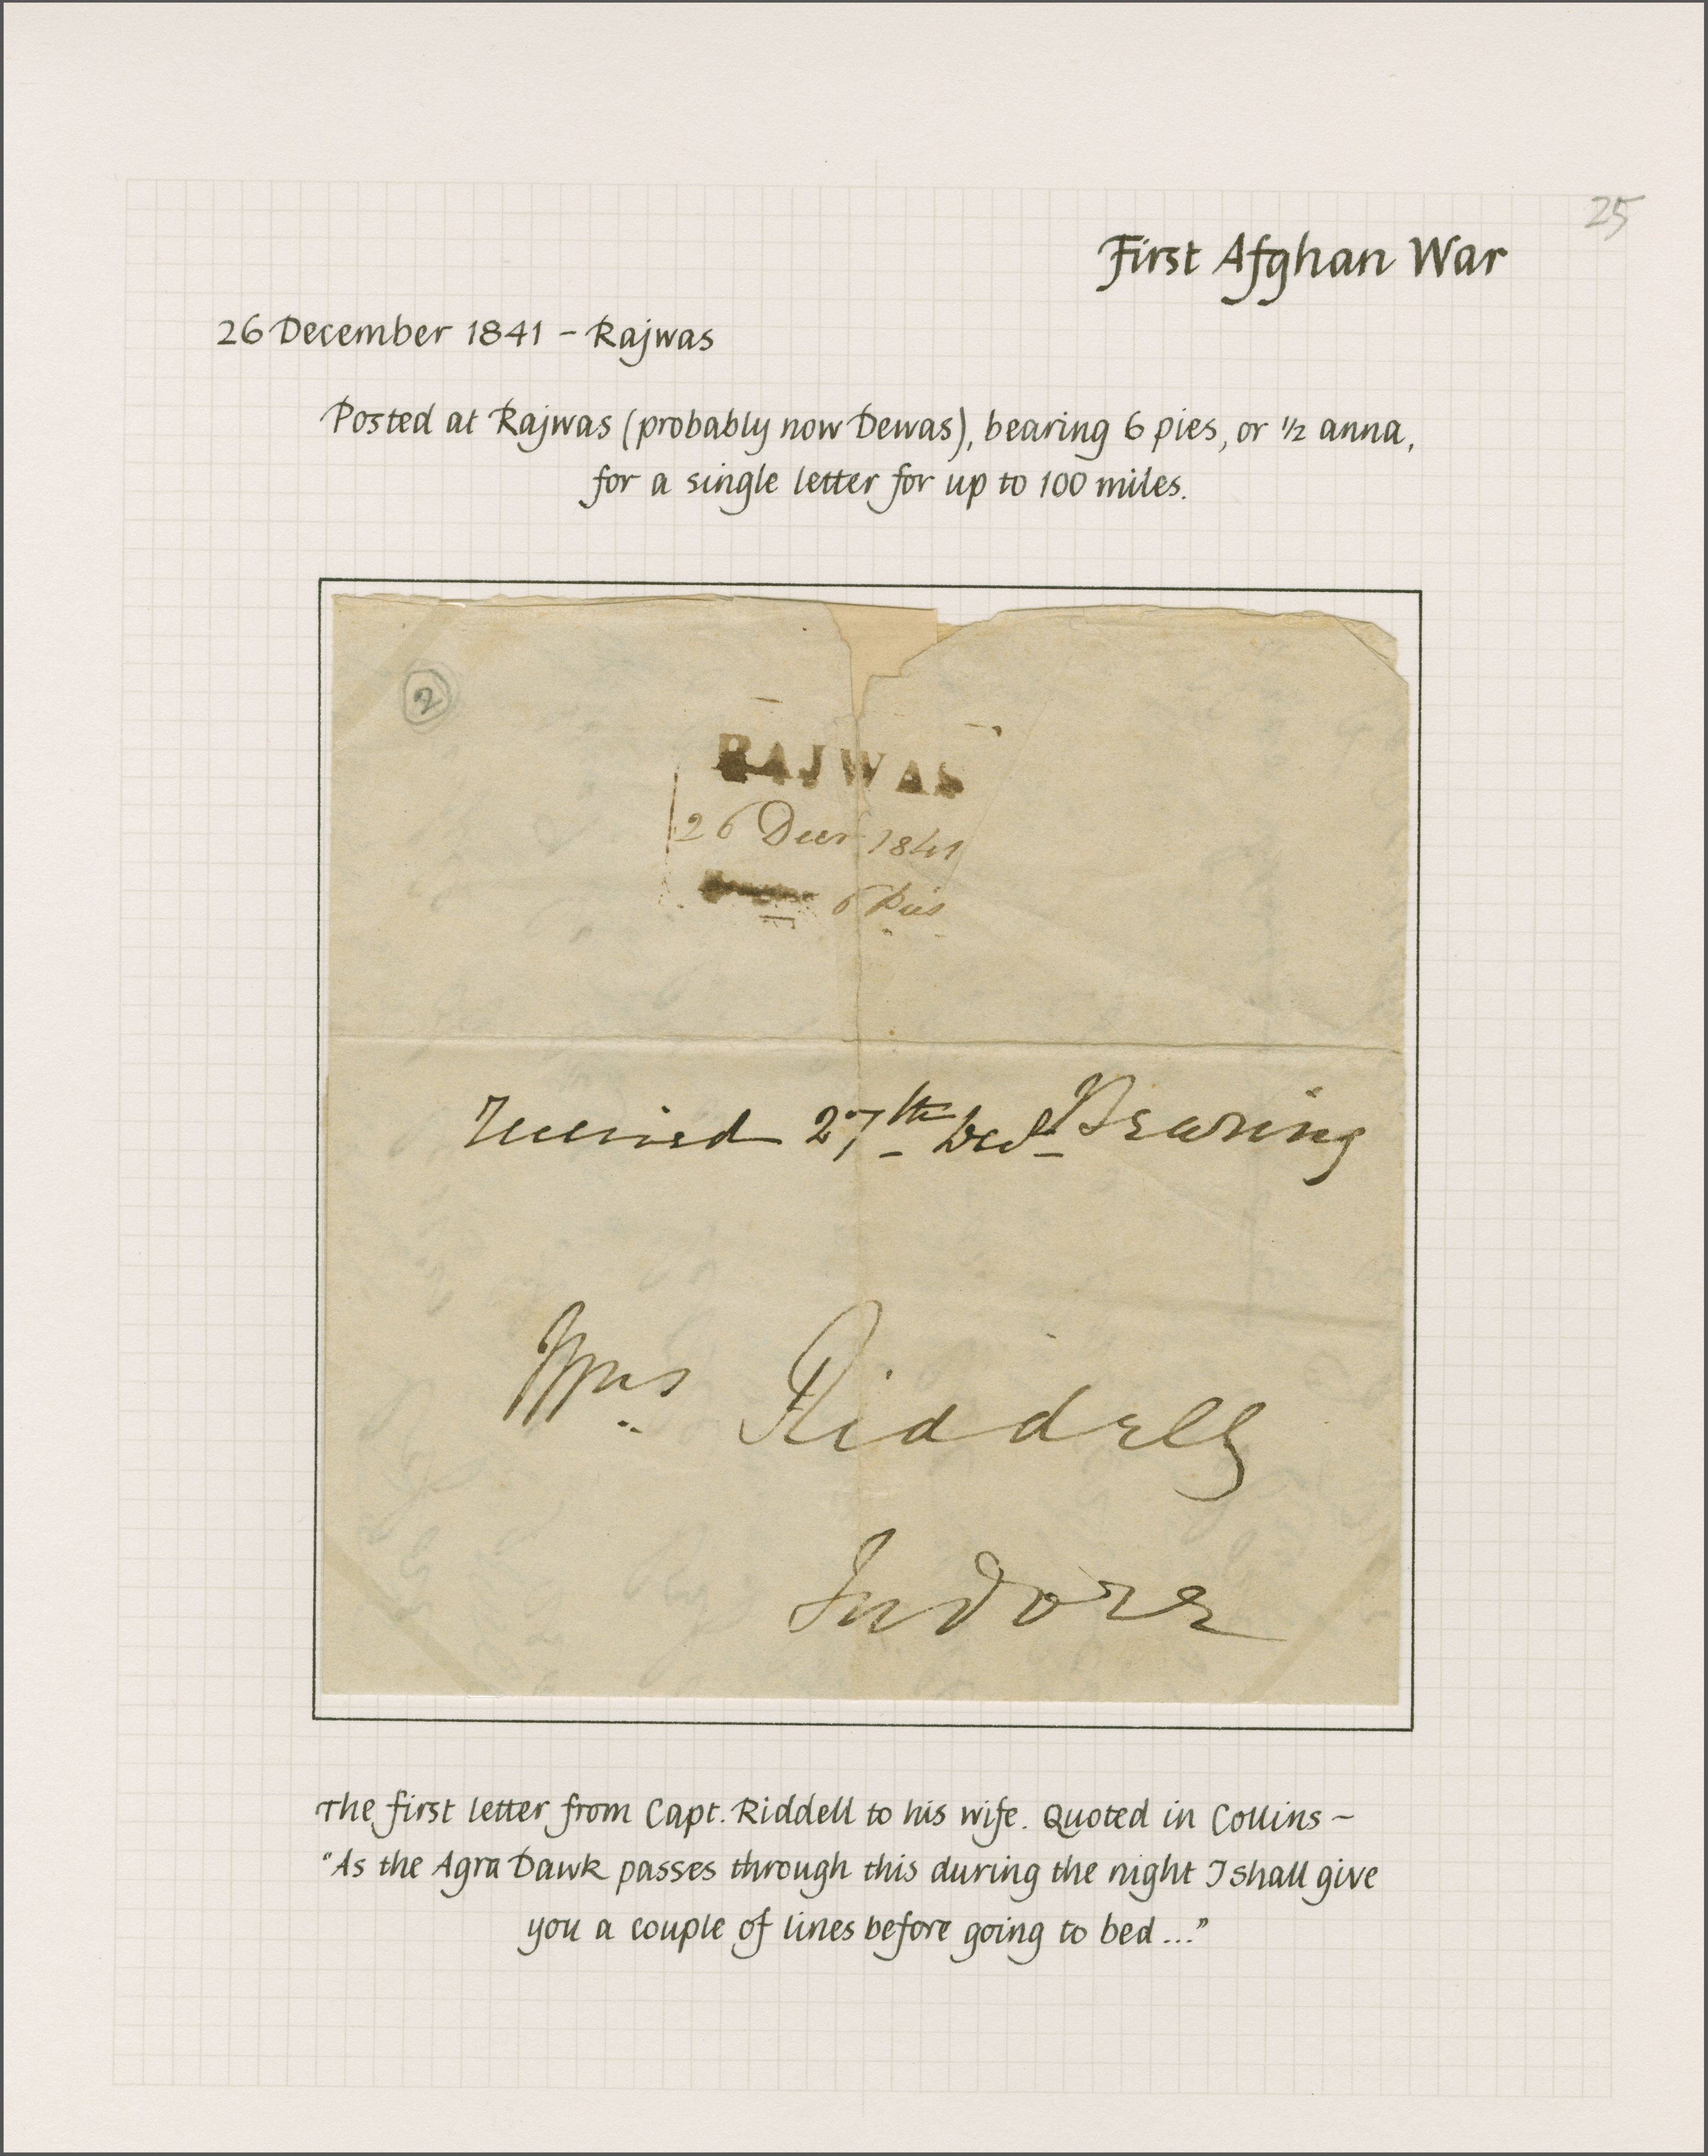 25
First Afghan War
26 December 1841 – Rajwas
Posted at Rajwas (probably now Dewas), bearing 6 pies, or ½ anna,
for a single letter for up to 100 miles.
2
RAJWAS
26 Decr 1841
6 Pies
Received 27th Decr Bearing
Mrs Riddell
Indore
The first letter from Capt. Riddell to his wife. Quoted in Collins –
"As the Agra Dawk passes through this during the night I shall give
you a couple of lines before going to bed..."